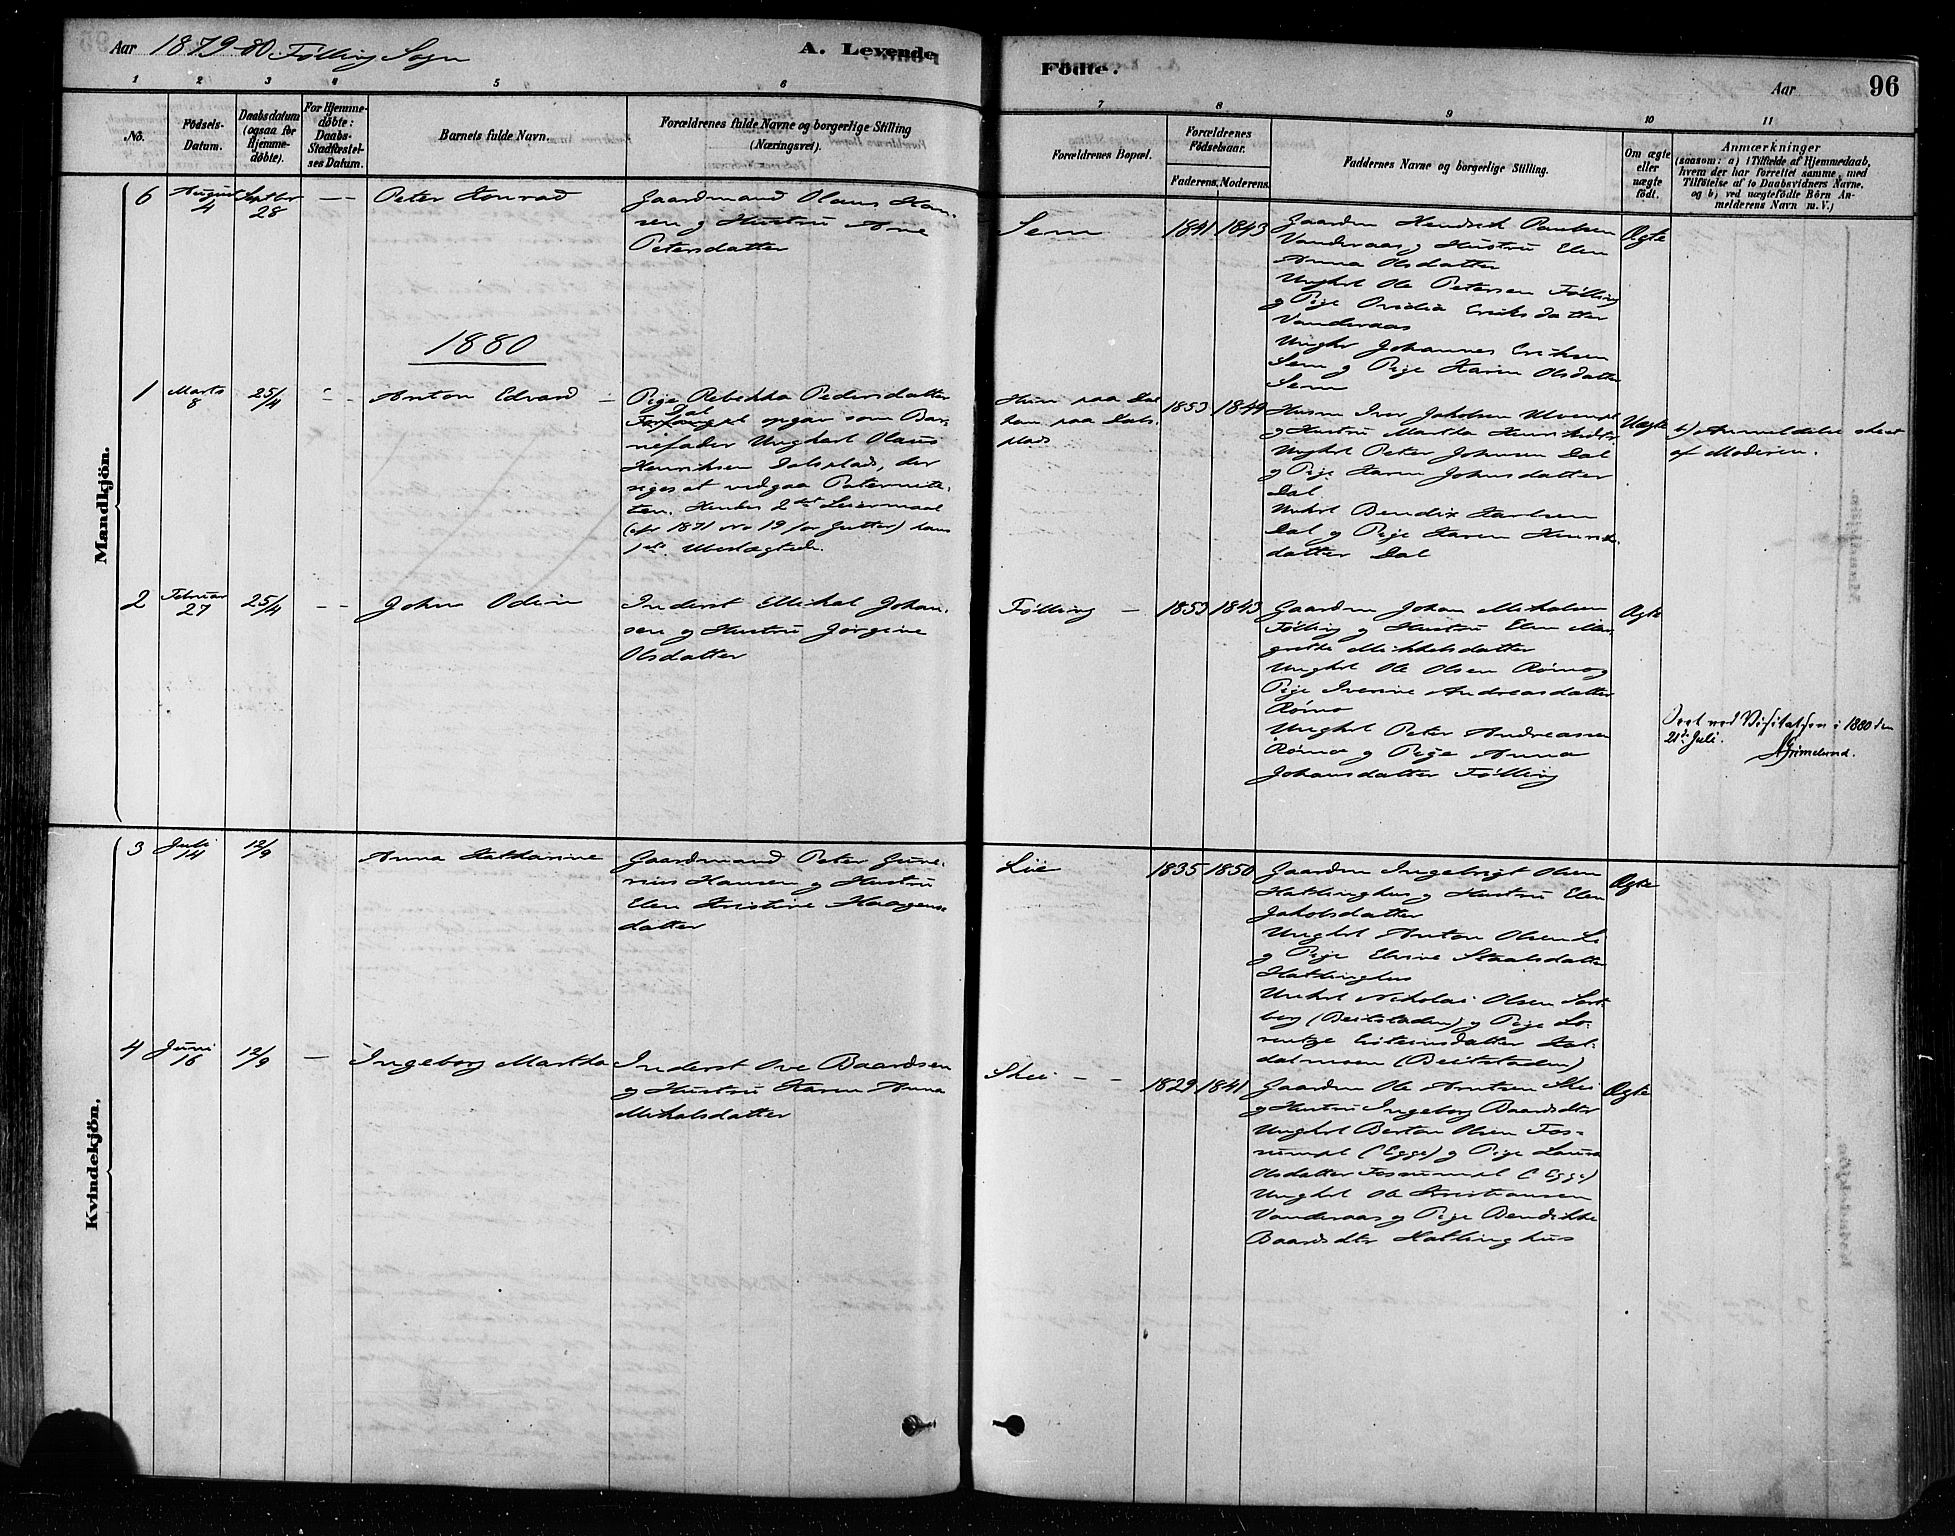 Aar 1879-80. Følling Sogn
A. Levende
Födte.
Aar
96
1 2 3 4 5 6
7 8 9 10 11
No.
Födsels-Datum.
Daabsdatum (ogsaa for Hjemme-döbte).
For Hjemme-döbte: Daabs-Stadfæstel-ses Datum.
Barnets fulde Navn.
Forældrenes fulde Navne og borgerlige Stilling (Næringsvei).
Forældrenes Bopæl.
Forældrenes Födselsaar.
Faderens. Moderens.
Faddernes Navne og borgerlige Stilling.
Om ægte eller uægte født.
Anmærkninger
(saasom: a) i Tilfælde af Hjemmedaab,
hvem der har forrettet samme, med
Tilföielse af to Daabsvidners Navne.
og b) ved uægtefödte Börn An-
melderens Navn m. V.)
Mandkjön.
6 August 4 Septbr 28 — — Peter Konrad
Gaardmand Olaus Han-
sen og Hustru Ane
Petersdatter
Sem 1841 1843
Gaardm Hendrik Paulsen
Vanderaas og Hustru Elen
Anna Olsdatter
Unghrl Ole Petersen Følling
og Pige Ovidia Eriksdatter
Vanderaas
Unghr Johannes Eriksen
Sem og Pige Karen Olsdatter
Sem
Ægte
1880
1 Marts 8 25/4 - - Anton Edvard —
Pige Rebekka Pedersdatter
Dal
opgav som Bar-
nefader Unghrl Olaus
Henriksen Dalsplads, der
siges at vedgaa Paternite-
ten. Hendes 2det Leiermaal
(cfr 1871 No 19 for Gutter) hans
1ste. Ubeslægtede.
Hun paa Dal
han paa Dals-
plads
1853 1849
Husm Iver Jakobsen
og Hustru Martha
Unghrl Peter Johnsen Dal
og Pige Karen Johnsdatter
Dal
Unghrl Bendix Karlsen
Dal og Pige Karen Henriks-
datter Dal
Uægte
b) Anmeldelse skeet
af Moderen.
2 Februar 27 25/4 - - John Odin
Inderst Mikal Johan-
sen og Hustru Jørgine
Olsdatter
Følling — 1853 1843
Gaardm Johan Mikalsen
Følling og Hustru Elen Mar-
grethe Mikkelsdatter
Unghrl Ole Olsen Rømo og
Pige Iverine Andreasdatter
Rømo
Unghrl Peter Andreassen
Rømo og Pige Anna
Johansdatter Følling
Ægte
Seet ved Visitatsen i 1880 den
21de Juli. AGrimelund.
Kvindekjön,
3 Juli 14 12/9 Anna Katharine
Gaardmand Peter Gune-
rius Hansen og Hustru
Elen Kristine Haagens-
datter
Lie 1835 1850
Gaardm Ingebrigt Olsen
Hatlinghus og Hustru Elen
Jakobsdatter
Unghrl Anton Olsen Li
og Pige Elisine Staalsdatter
Hatlinghus
Unghrl Nikolai Olsen
(Beitstaden) og Pige Lo-
rentze
(Beitstaden)
Ægte
4 Juni 16 12/9 — Ingeborg Martha
Inderst Ove Baardsen
og Hustru Karen Anna
Mikalsdatter
Skei - - 1829 1841
Gaardm Ole Arntsen Skei
og Hustru Ingeborg Baardsdtr
Unghrl Bertan Olsen Fos-
sumpl (Egge) og Pige Laura
Olsdatter Fossumpl (Egge)
Unghrl Ole Kristiansen
Vanderaas og Pige Bendikke
Baardsdtr Hatlinghus
Ægte